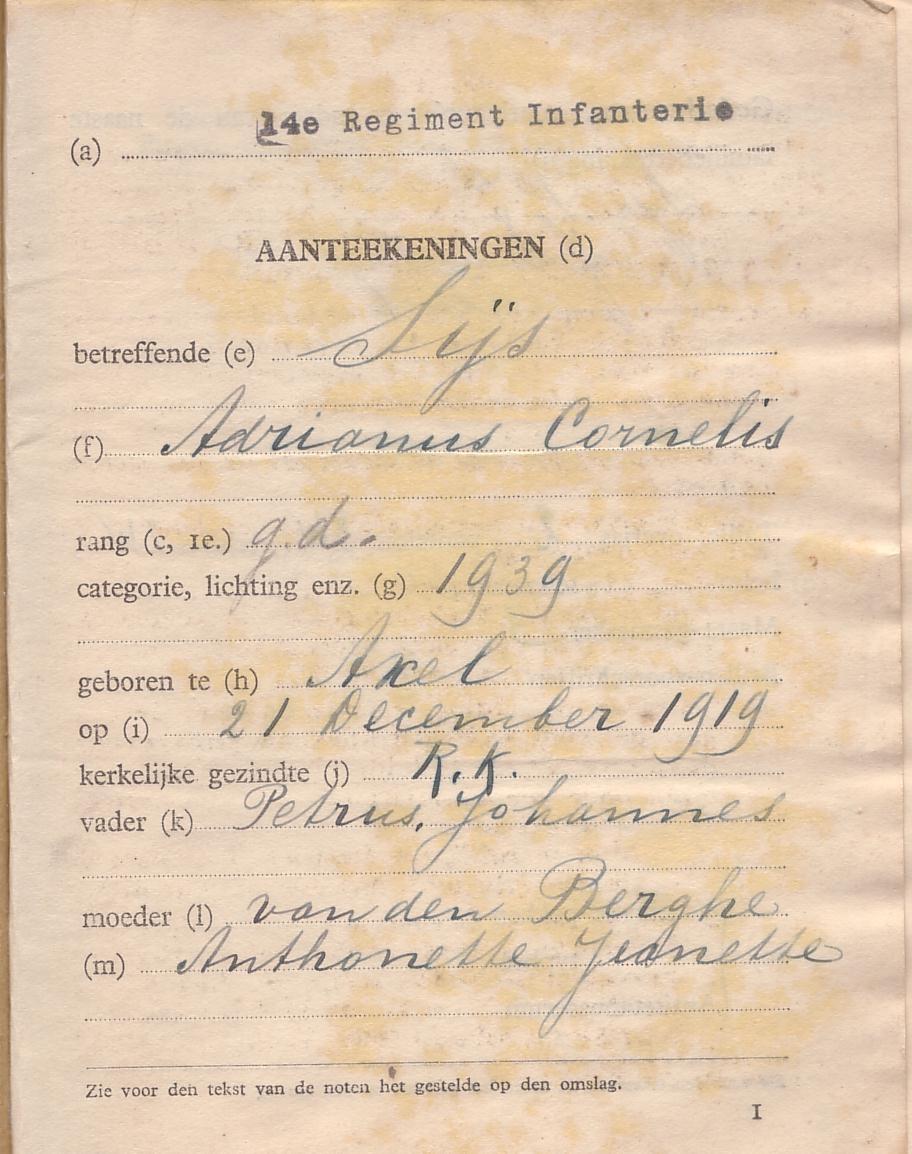 14e Regiment Infanterie
(a)
AANTEEKENINGEN (d)
betreffende (e) Sijs
(f) Adrianus Cornelis
rang (c, 1e.) g.d.
categorie, lichting enz. (g) 1939
geboren te (h) Axel
op (i) 21 December 1919
kerkelijke gezindte (j) R.K.
vader (k) Petrus, Johannes
moeder (l) van den Berghe
(m) Anthonette Jeanette
Zie voor den tekst van de noten het gestelde op den omslag.
1